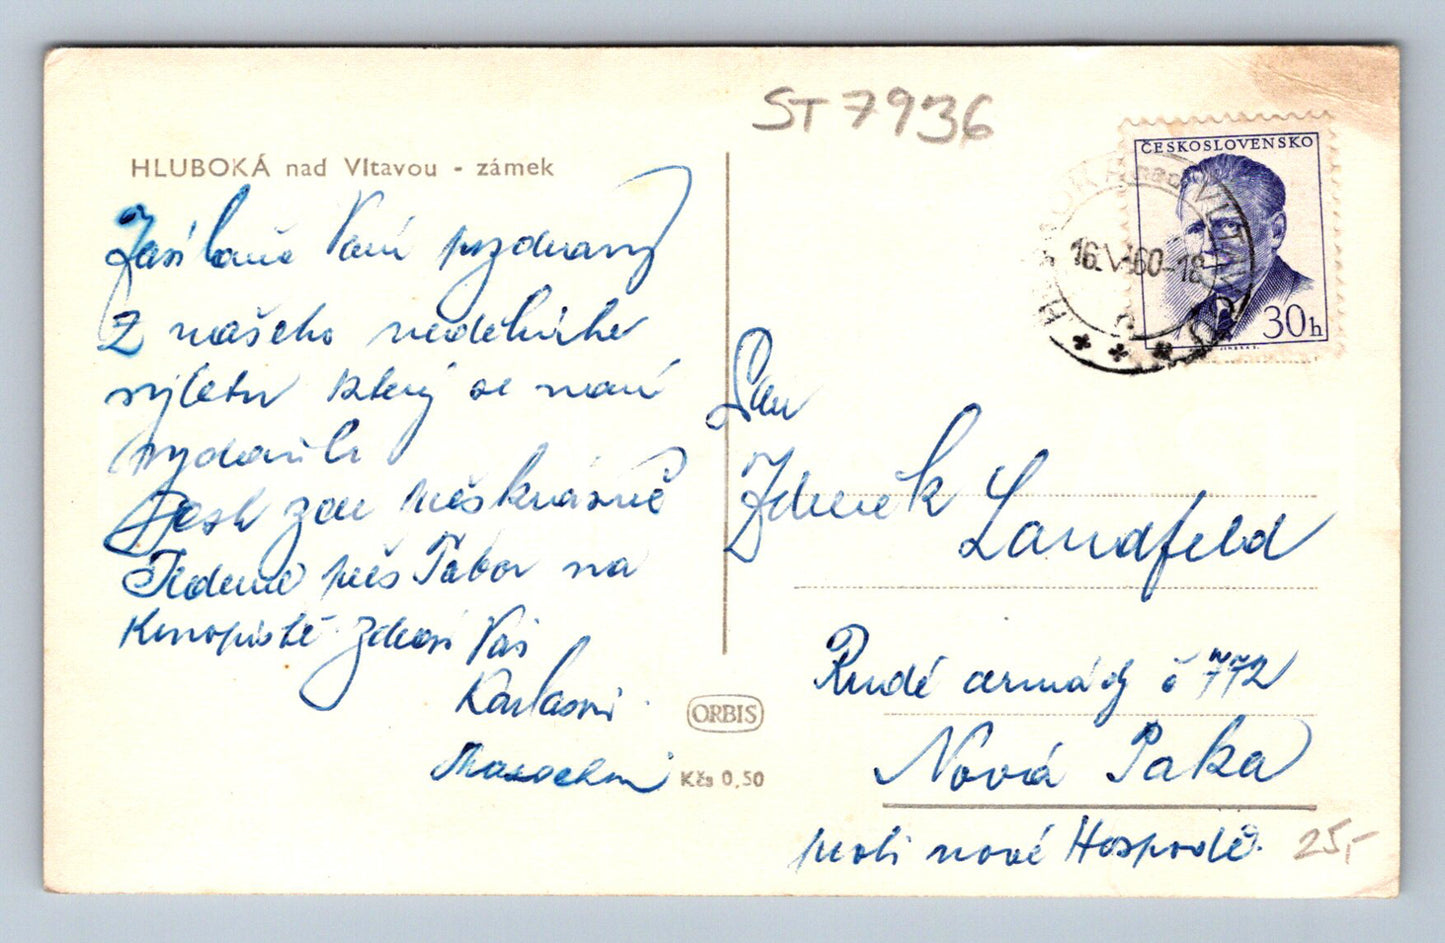 ST 7936
HLUBOKÁ nad Vltavou - zámek
ČESKOSLOVENSKO
30h
16.V.60-18
Zasíláme Vám pozdravy
z našeho nedělního
výletu který se nám
vydařil
Jest zde překrásně
Jedeme přes Tábor na
Konopiště. Zdraví Vás
Pan
Zdeněk Landfeld
Rudé armády č 772
Nová Paka
proti nové Hospodě.
ORBIS
Kčs 0,50
25,-